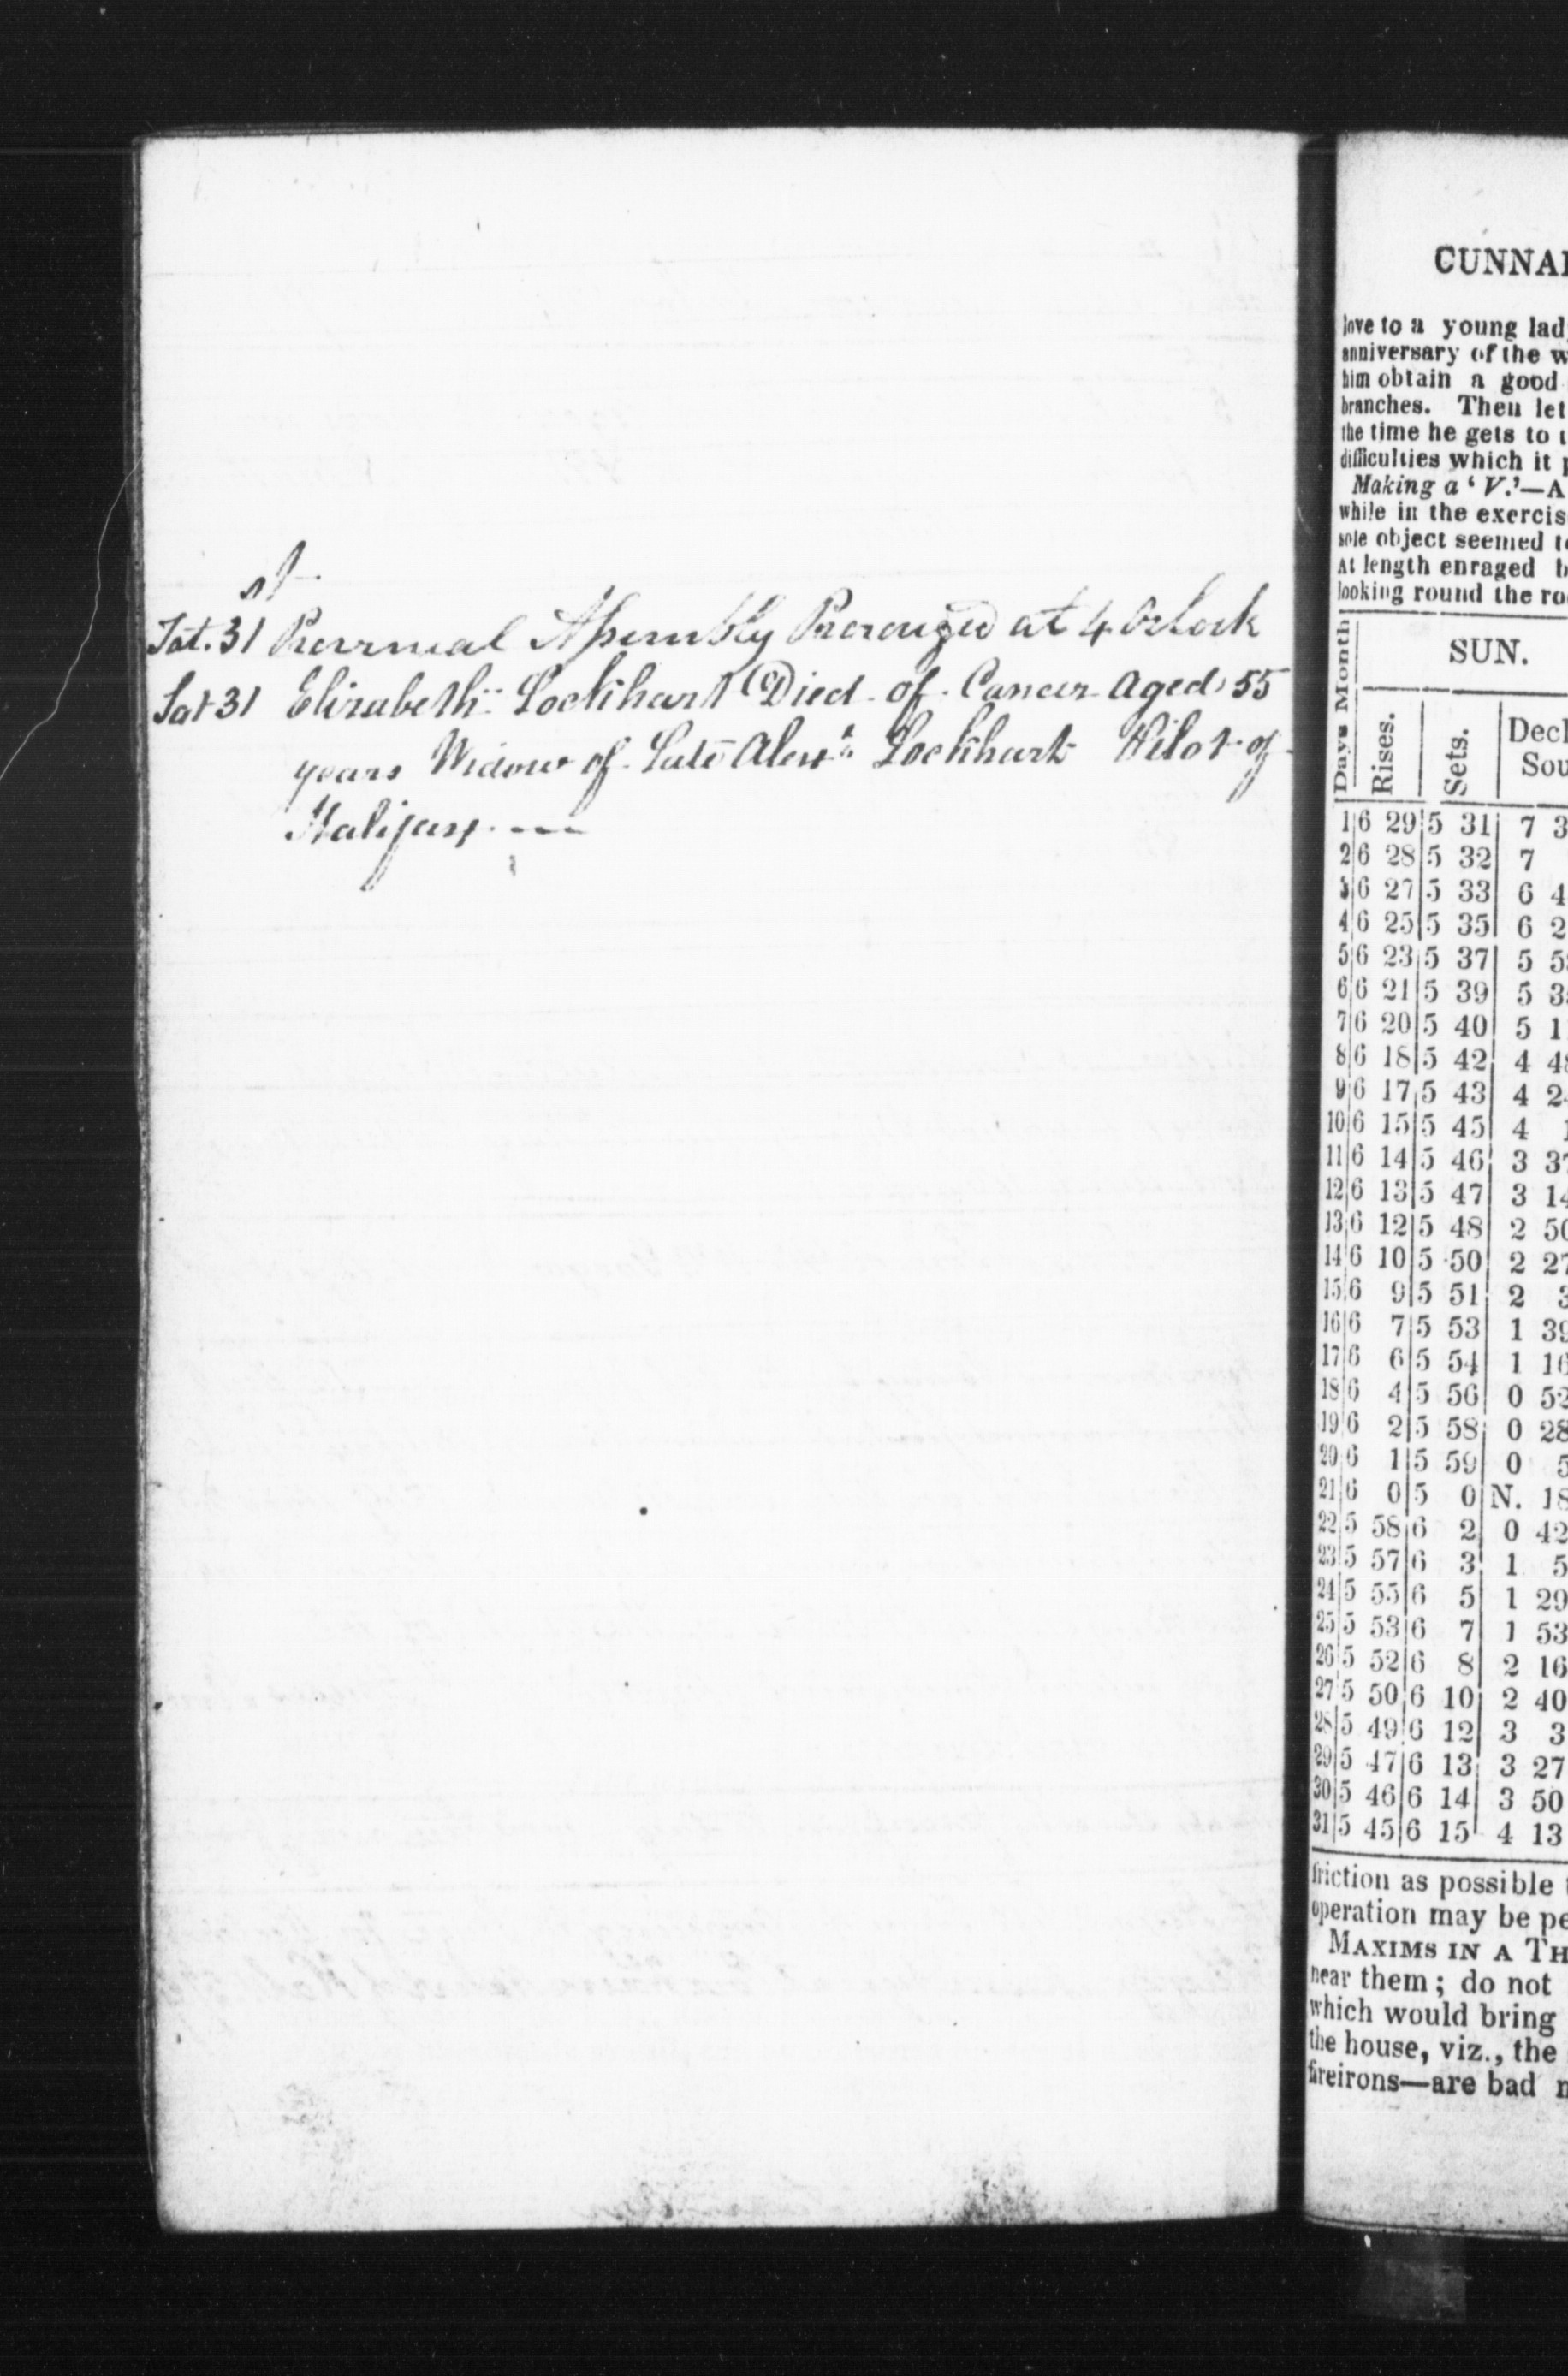 st
Sat. 31 Provincial Assembly Prorouged at 4 Oclock
Sat 31 Elizabeth Lockhart Died of Cancer Aged 55
years Widow of Late Alexr Lockhart Pilot of
Halifax
CUNNA
love to a young lad
anniversary of the w
him obtain a good
branches. Then let
the time he gets to t
difficulties which it p
Making a 'V.'—A
while in the exercis
sole object seemed t
At length enraged b
looking round the ro
Days Month
SUN.
Rises.
Sets.
Decl
Sou
1 6 29 5 31 7 3
2 6 28 5 32 7
3 6 27 5 33 6 4
4 6 25 5 35 6 2
5 6 23 5 37 5 5
6 6 21 5 39 5 3
7 6 20 5 40 5 1
8 6 18 5 42 4 4
9 6 17 5 43 4 2
10 6 15 5 45 4 1
11 6 14 5 46 3 37
12 6 13 5 47 3 14
13 6 12 5 48 2 50
14 6 10 5 50 2 27
15 6 9 5 51 2 3
16 6 7 5 53 1 39
17 6 6 5 54 1 16
18 6 4 5 56 0 52
19 6 2 5 58 0 28
20 6 1 5 59 0 5
21 6 0 5 0 N. 18
22 5 58 6 2 0 42
23 5 57 6 3 1 5
24 5 55 6 5 1 29
25 5 53 6 7 1 53
26 5 52 6 8 2 16
27 5 50 6 10 2 40
28 5 49 6 12 3 3
29 5 47 6 13 3 27
30 5 46 6 14 3 50
31 5 45 6 15 4 13
friction as possible
operation may be pe
MAXIMS IN A TH
near them; do not
which would bring
the house, viz., the
fireirons—are bad